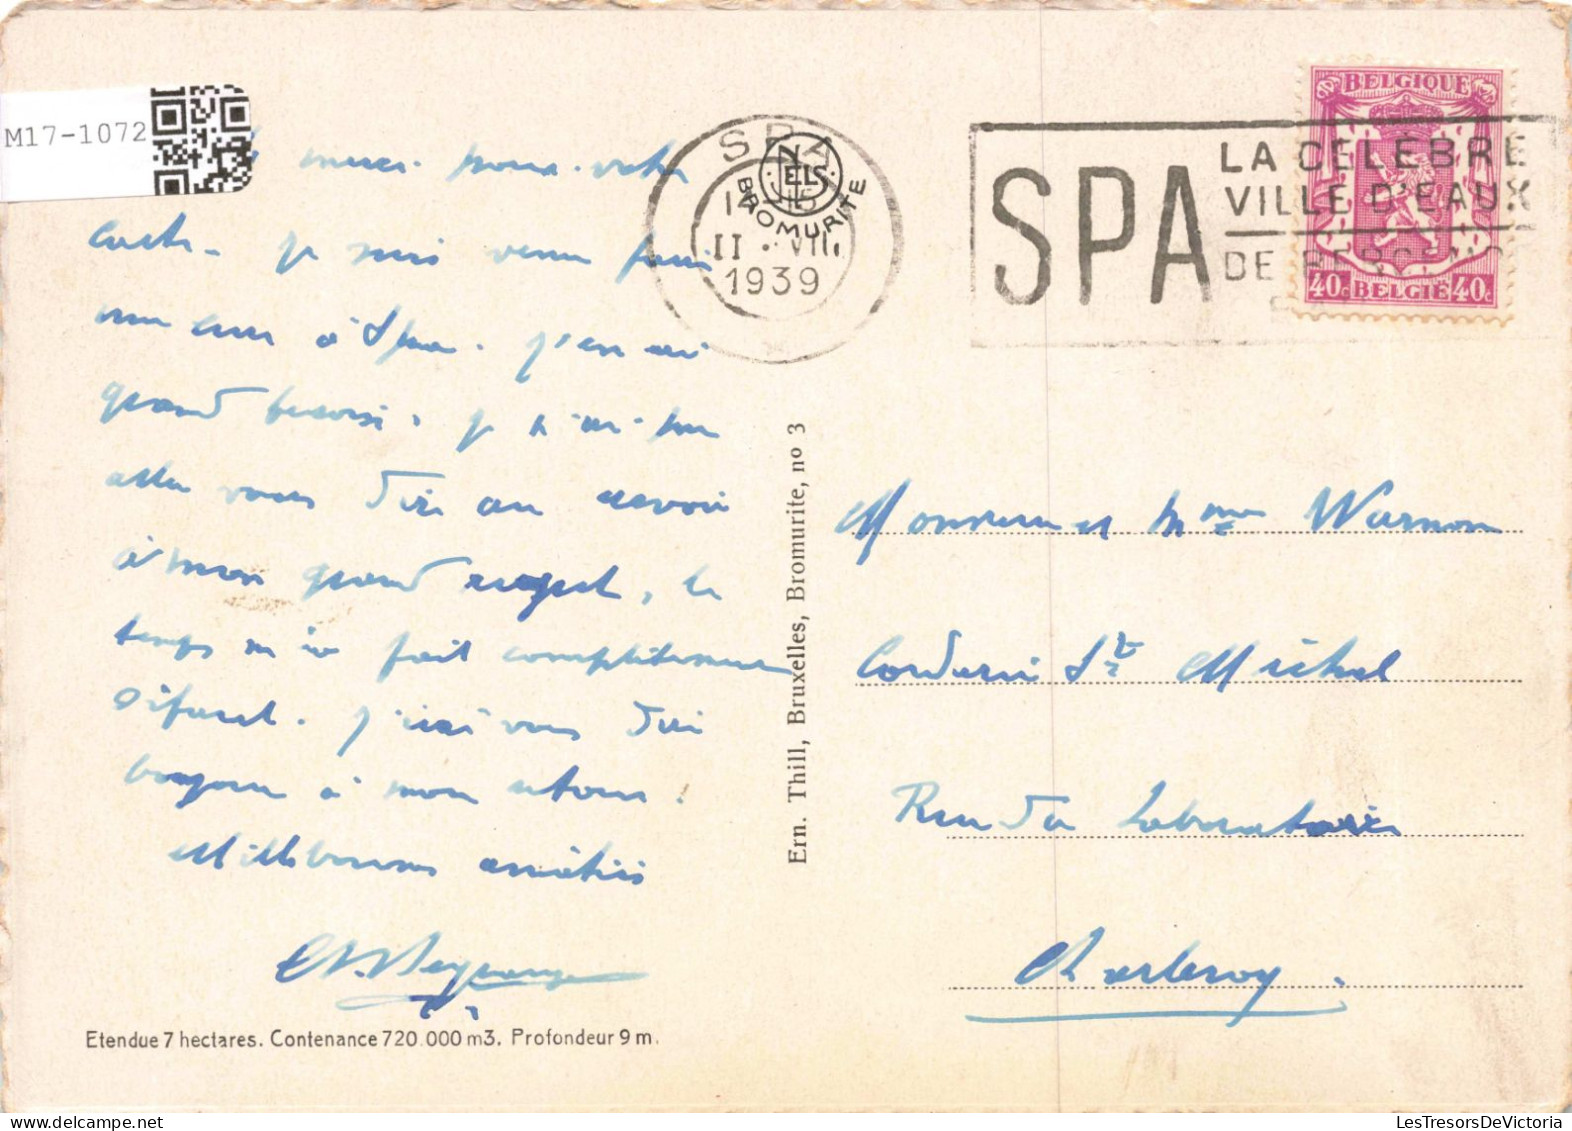 M17-1072
merci pour votre
carte. je suis venu faire
une cure à Spa. j'en ai
grand besoin, je n'ai pu
aller vous dire au revoir
à mon grand regret, le
temps m'a fait complètement
défaut. j'irai vous dire
bonjour à mon retour.
Mille bonnes amitiés
Etendue 7 hectares. Contenance 720.000 m3. Profondeur 9 m.
Ern. Thill, Bruxelles, Bromurite, no 3
SPA
NELS
BROMURITE
II . VII
1939
SPA
LA CELÈBRE
VILLE D'EAUX
DE
BELGIQUE
40c BELGIE 40c
Monsieur et Mme Warnon
Corderie St Michel
Rue du Laboratoire
Charleroy.
LesTresorsDeVictoria.com